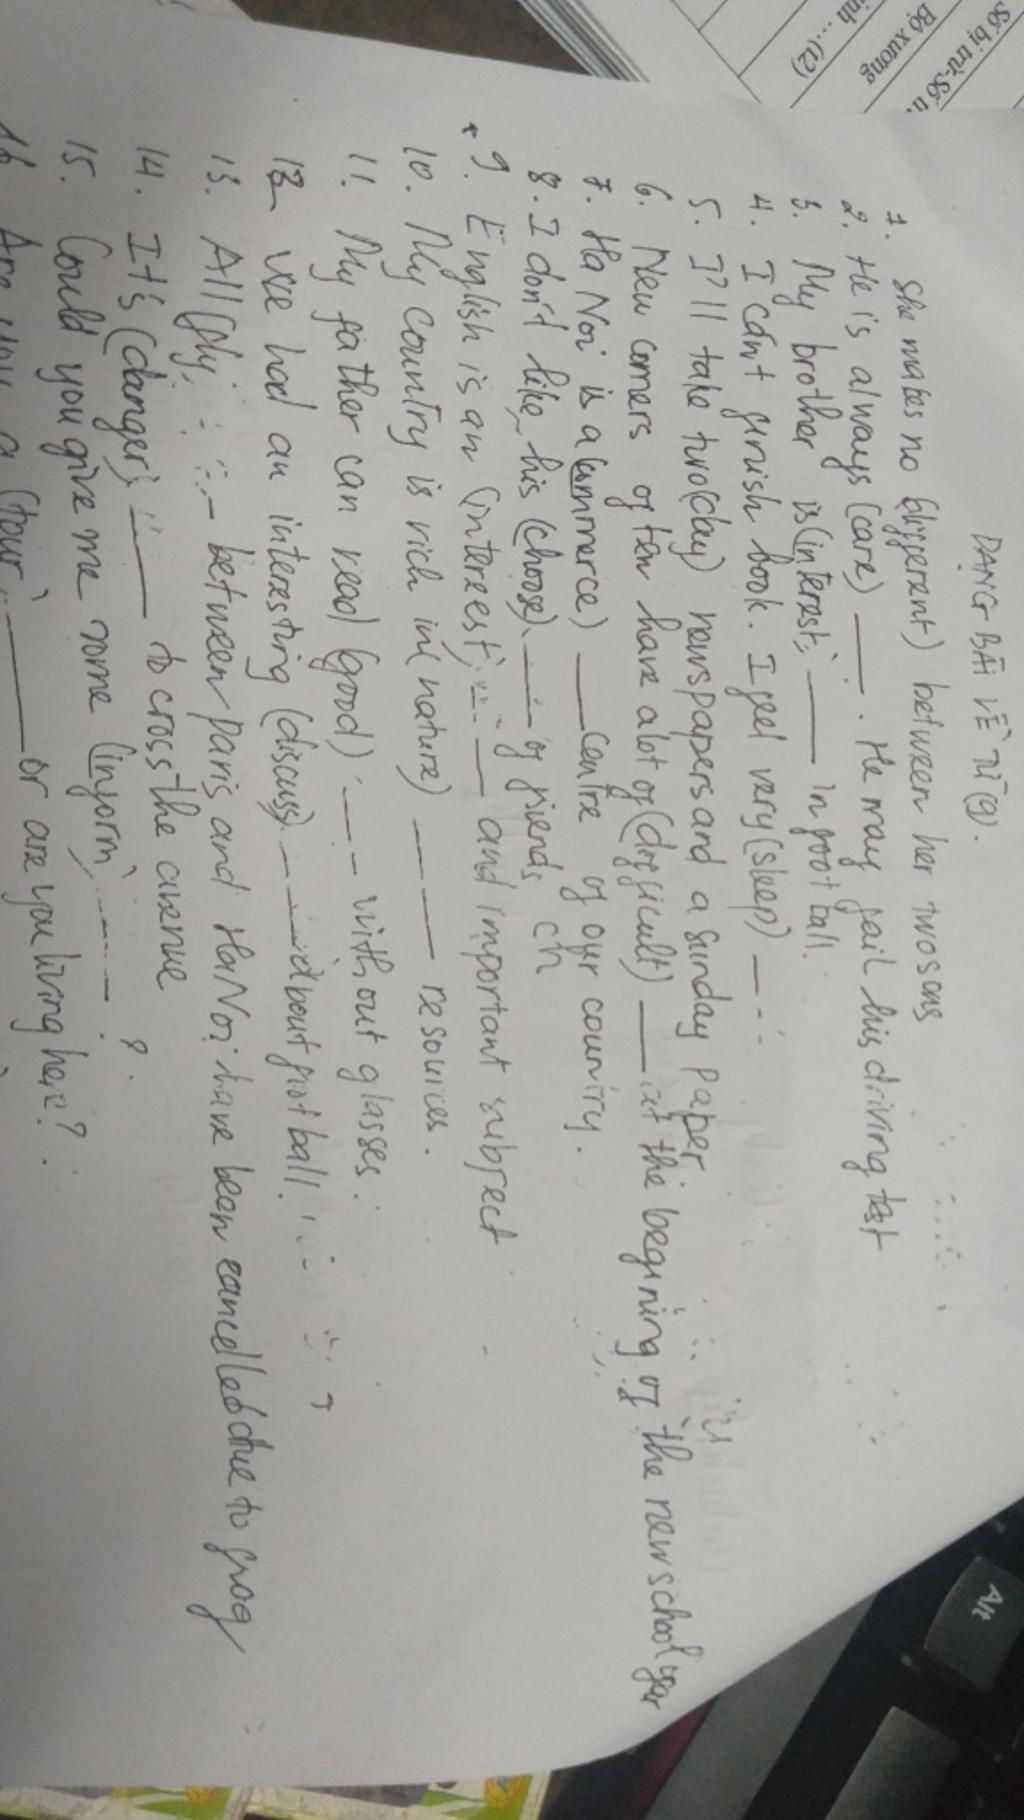 DẠNG BÀI VỀ TỪ (g).
1. She makes no (different) between her two sons
2. He is always (care) ___. He may fail his driving test
3. My brother is (interest) ___ in football.
4. I can't finish book. I feel very (sleep) ___
5. I'll take two (day) newspapers and a sunday paper
6. New comers often have alot of (difficult) ___ at the begining of the new school year
7. Ha Noi is a (commerce) ___ centre of our country.
8. I don't like his (choose) ___ of fiends
ch
9. English is an (interest) ___ and important subject
10. My country is rich in (nature) ___ resources.
11. My father can read (good) ___ without glasses.
12 We had an interesting (discuss) ___ about football.
13. All (fly) ___ between Paris and Ha Noi have been cancelled due to frog
14. It's (danger) ___ to cross the avenue
15. Could you give me some (inform) ___ ?
16 Are you a (tour) ___ or are you living here?
Số bị trừ-Số
Bộ xương
... (12)
Alt